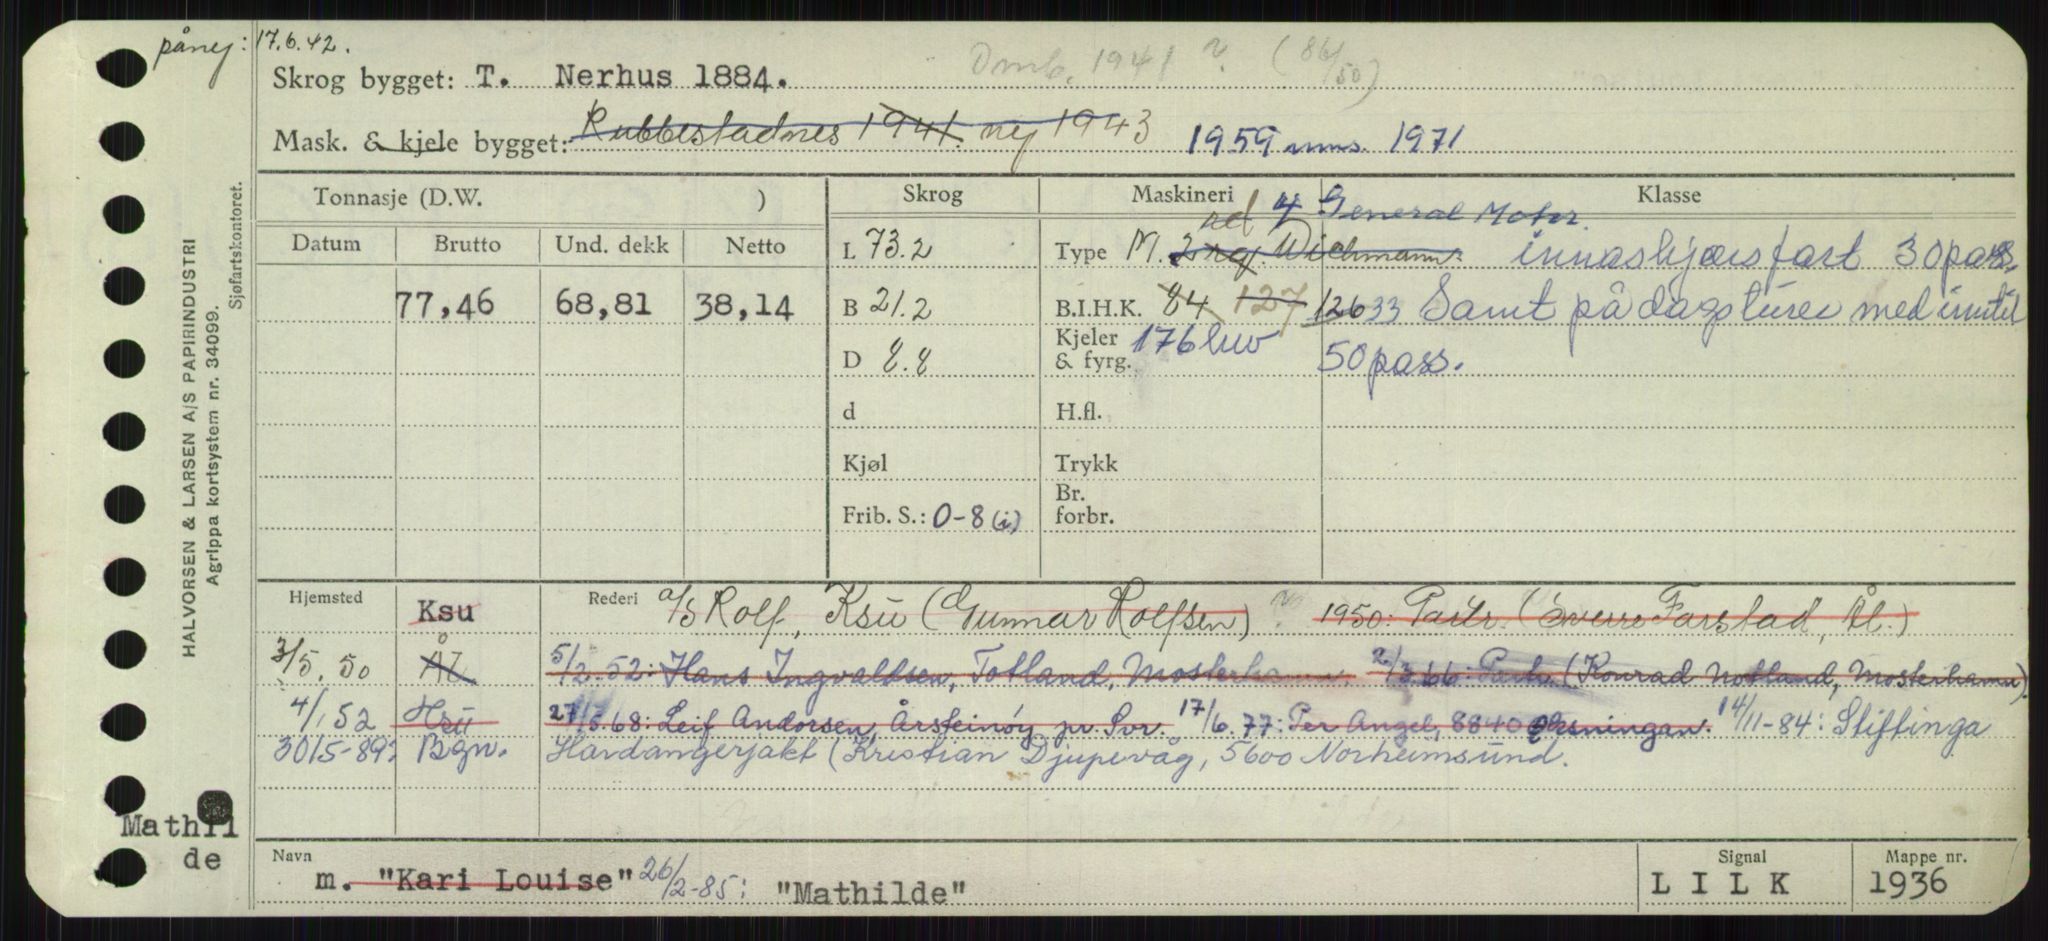 pånej: 17.6.42.
Omb. 1941 ? (86/50)
Skrog bygget: T. Nerhus 1884.
Mask. & kjele bygget: Rubbestadnes 1941. ny 1943 1959 mms. 1971
HALVORSEN & LARSEN A/S PAPIRINDUSTRI
Agrippa kortsystem nr. 34099.
Sjøfartskontoret.
Tonnasje (D.W. ) Skrog Maskineri Klasse
Datum Brutto Und. dekk Netto
77,46 68,81 38,14
L 73.2
B 21.2
D 8.8
d
Kjøl
Frib. S.: 0-8 (i)
4 General Motor
Type M. Wichmann
B.I.H.K. 84 127 126
Kjeler & fyrg. 176 kW
H.fl.
Trykk
Br. forbr.
innaskjærsfart 30 pass.
33 Samt på dagsturer med inntil
50 pass.
Hjemsted Ksu Rederi A/S Rolf, Ksu (Gunnar Rolfsen) ? 1950: Partr. (Sverre Farstad, Ål.)
3/5.50 Ål 5/2-52: Hans Ingvaldsen, Totland, Mosterhamn, 2/3 66: Partr. (Konrad Notland, Mosterhamn)
4/1 52 Hsu 27/5.68: Leif Andorsen, Årsteinøy pr. Svr. 17/6.77: Per Angel, 8840 14/11-84: Stiftinga
30/5-89: Bgn. Hardangerjakt (Kristian Djupevåg, 5600 Norheimsund.
Mathil
de
Navn m. "Kari Louise" 26/2-85: "Mathilde"
Signal LILK
Mappe nr. 1936